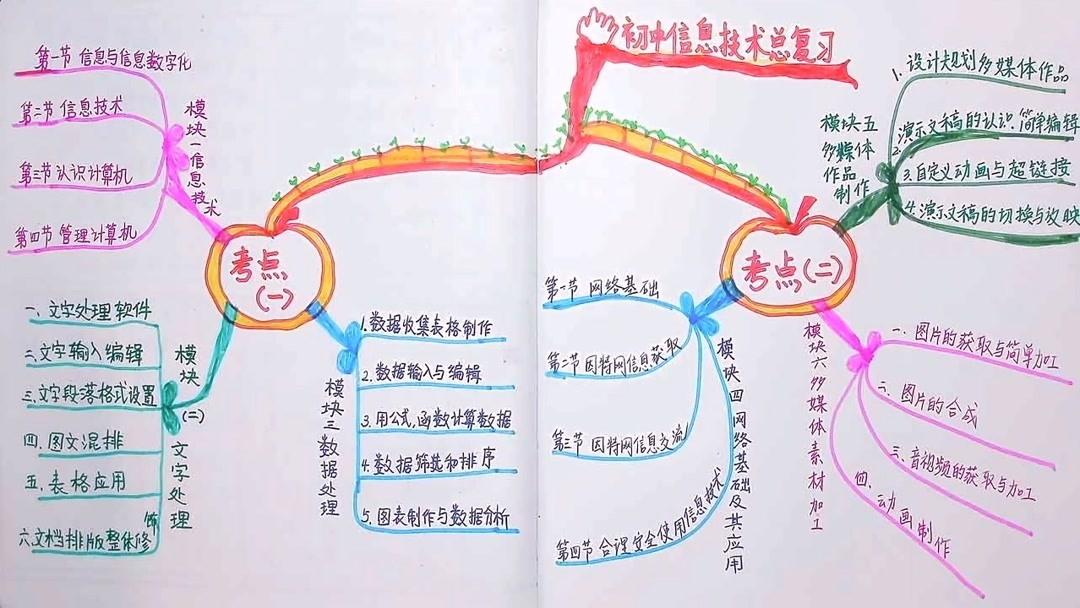 初中信息技术总复习
考点
(一)
模块一信息技术
第一节 信息与信息数字化
第二节 信息技术
第三节 认识计算机
第四节 管理计算机
模块(二)文字处理
一、文字处理软件
二、文字输入编辑
三、文字段落格式设置
四、图文混排
五、表格应用
六、文档排版整体修饰
模块三数据处理
1.数据收集表格制作
2.数据输入与编辑
3.用公式,函数计算数据
4.数据筛选和排序
5.图表制作与数据分析
考点(二)
模块四网络基础及其应用
第一节 网络基础
第二节 因特网信息获取
第三节 因特网信息交流
第四节 合理安全使用信息技术
模块五
多媒体
作品
制作
1.设计规划多媒体作品
演示文稿的认识.简单编辑
3.自定义动画与超链接
4.演示文稿的切换与放映
模块六多媒体素材加工
一.图片的获取与简单加工
二.图片的合成
三.音视频的获取与加工
四.动画制作